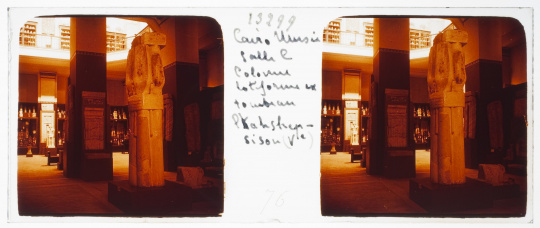 13299
Cairo Musée
Salle C
Colonne
lotiforme ex
tombeau
Ptahshep-
sisou (Ve)
76